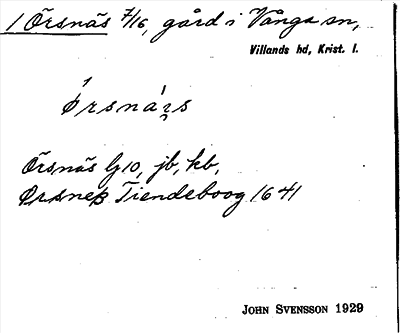 1 Örsnäs 7/16, gård i Vånga sn,
Villands hd, Krist. l.
ørsnás
Örsnäs Lj10, jb, kb,
Ørsneß Tiendeboog 1641
JOHN SVENSSON 1929